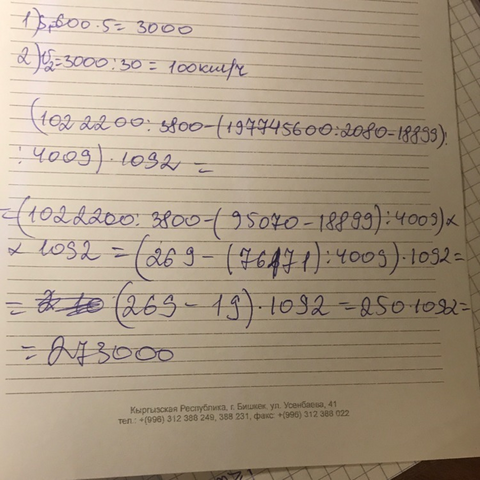 1) S₁ 600·5 = 3000
2) V₂ = 3000 : 30 = 100 км/ч
(1022200 : 3800 - (197745600 : 2080 - 18899) :
: 4009) · 1092 =
= (1022200 : 3800 - (95070 - 18899) : 4009) ×
× 1092 = (269 - (76171) : 4009) · 1092 =
= (269 - 19) · 1092 = 250 · 1092 =
= 273000
Кыргызская Республика, г. Бишкек, ул. Усенбаева, 41
тел.: +(996) 312 388 249, 388 231, факс: +(996) 312 388 022